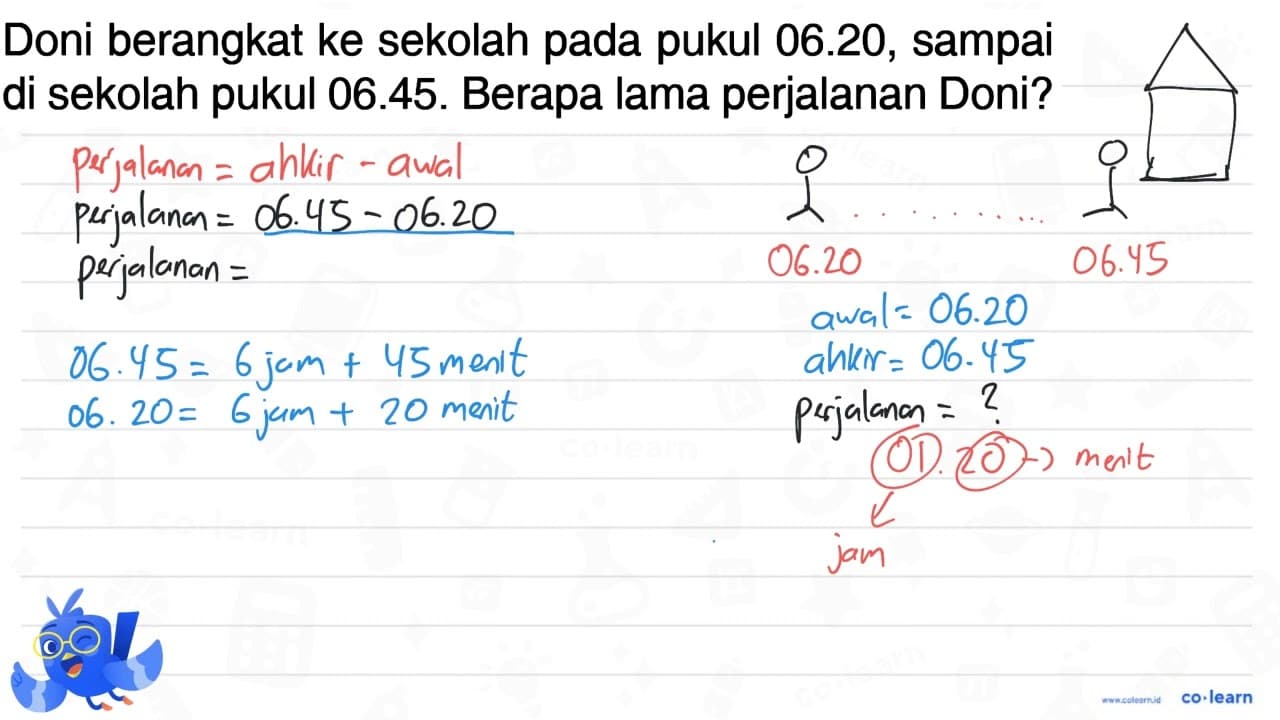 Doni berangkat ke sekolah pada pukul 06.20, sampai
di sekolah pukul 06.45. Berapa lama perjalanan Doni?
perjalanan = ahkir - awal
perjalanan = 06.45 - 06.20
perjalanan =
06.45 = 6 jam + 45 menit
06.20 = 6 jam + 20 menit
06.20
06.45
awal = 06.20
ahkir = 06.45
perjalanan = ?
01.20 → menit
jam
www.colearn.id
co·learn